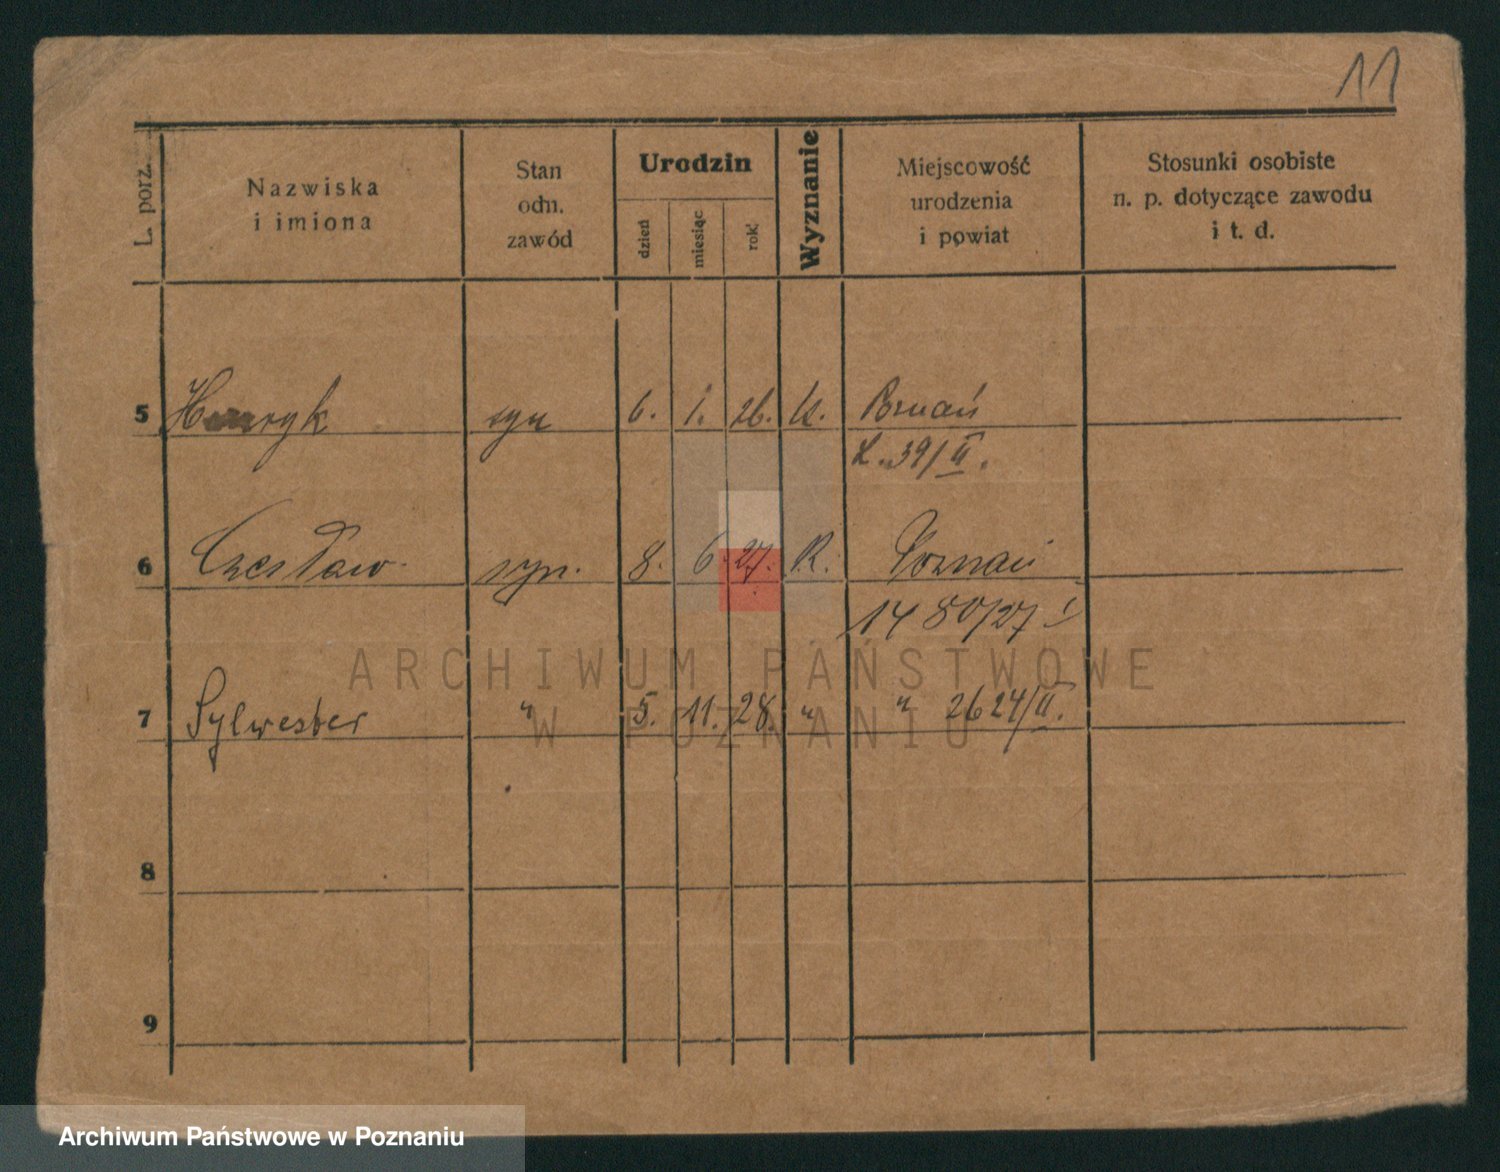 11
L. porz.
Nazwiska
i imiona
Stan
odn.
zawód
Urodzin
dzień
miesiąc
rok
Wyznanie
Miejscowość
urodzenia
i powiat
Stosunki osobiste
n. p. dotyczące zawodu
i t. d.
5 Henryk syn 6. 1. 26. K. Poznań
39/II.
6 Czesław syn. 8. 6. 27. R. Poznań
1480/27 I
7 Sylwester " 5. 11. 28. " " 2624/II.
8
9
ARCHIWUM PAŃSTWOWE
W POZNANIU
Archiwum Państwowe w Poznaniu